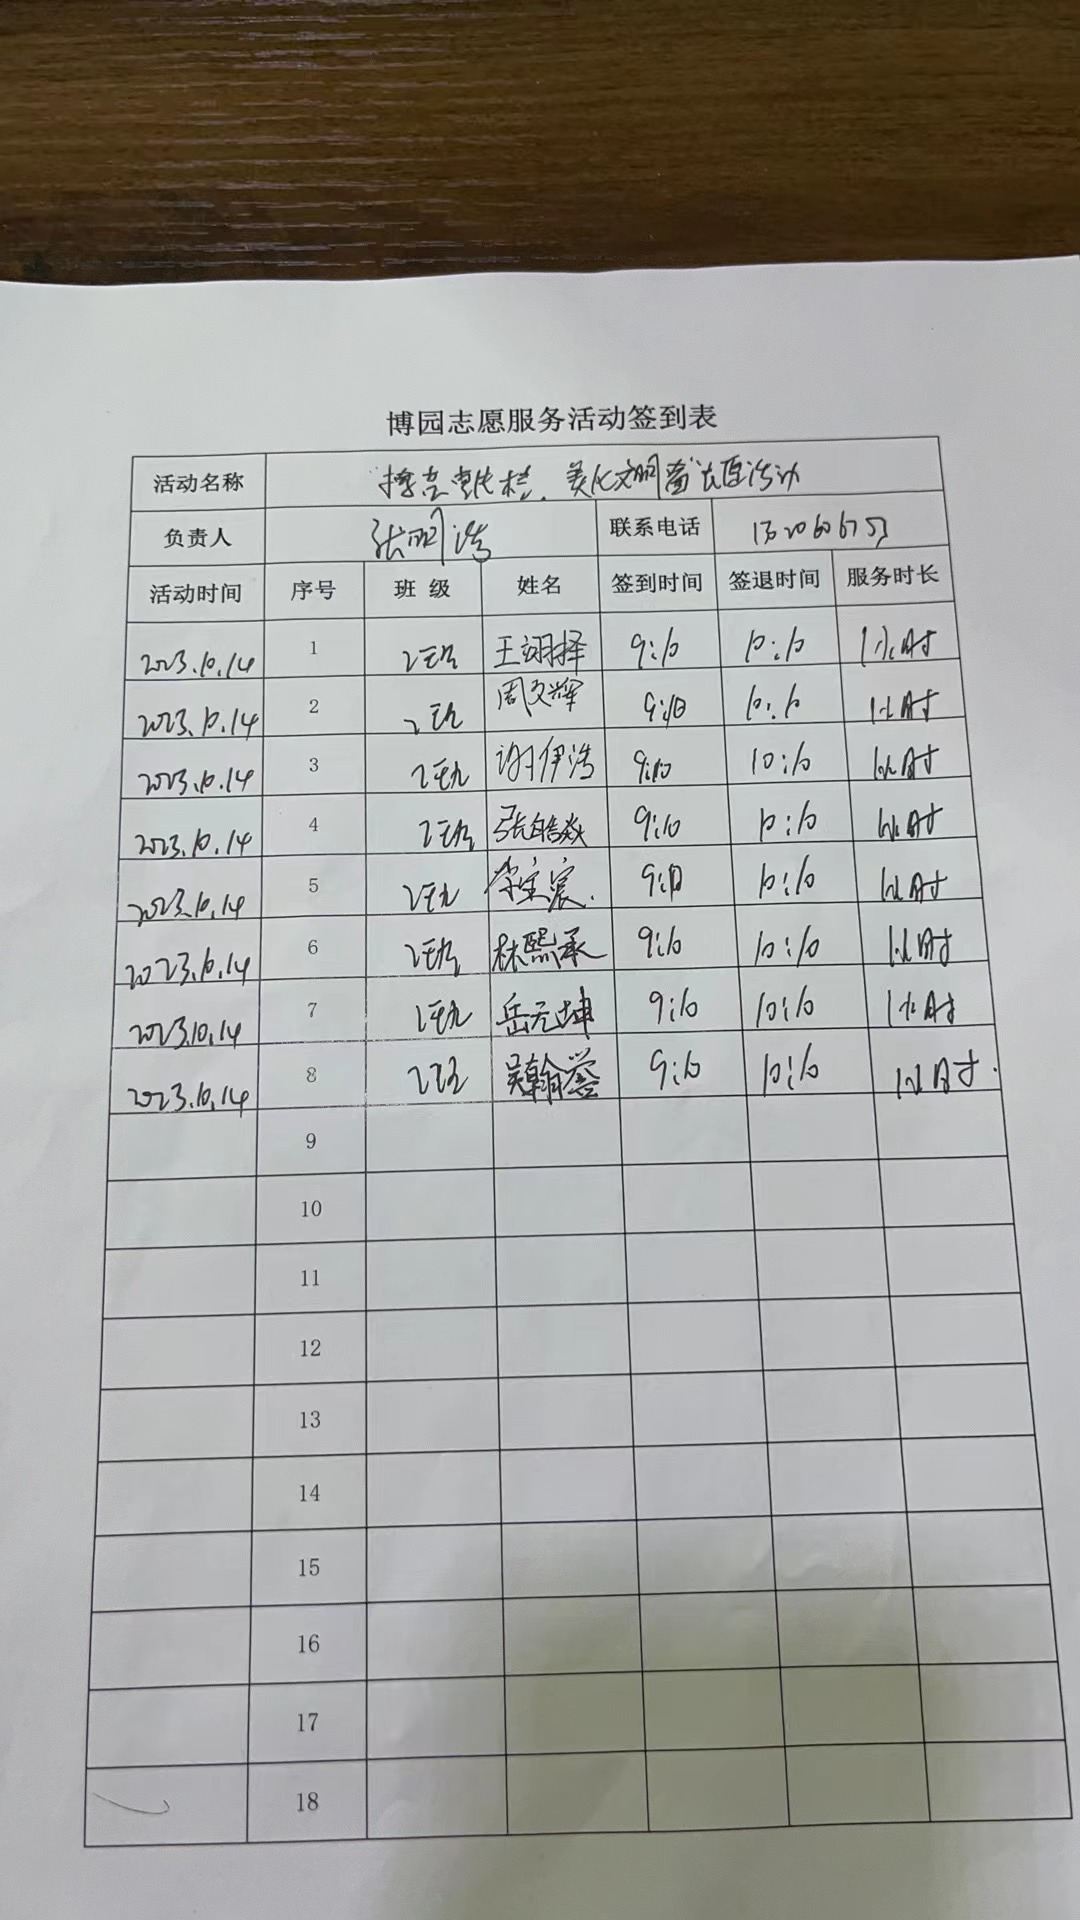 博园志愿服务活动签到表
活动名称 活动
负责人 张明浩 联系电话
活动时间 序号 班 级 姓名 签到时间 签退时间 服务时长
2023.10.14 1 2班 王翊择 9:10 10:10 1小时
2023.10.14 2 2班 周文辉 9:10 10:10 1小时
2023.10.14 3 2班 谢伊浩 9:10 10:10 1小时
2023.10.14 4 2班 张皓焱 9:10 10:10 1小时
2023.10.14 5 2班 李宝宸 9:10 10:10 1小时
2023.10.14 6 2班 林熙承 9:10 10:10 1小时
2023.10.14 7 2班 岳元坤 9:10 10:10 1小时
2023.10.14 8 2班 吴翰誉 9:10 10:10 1小时
9
10
11
12
13
14
15
16
17
18